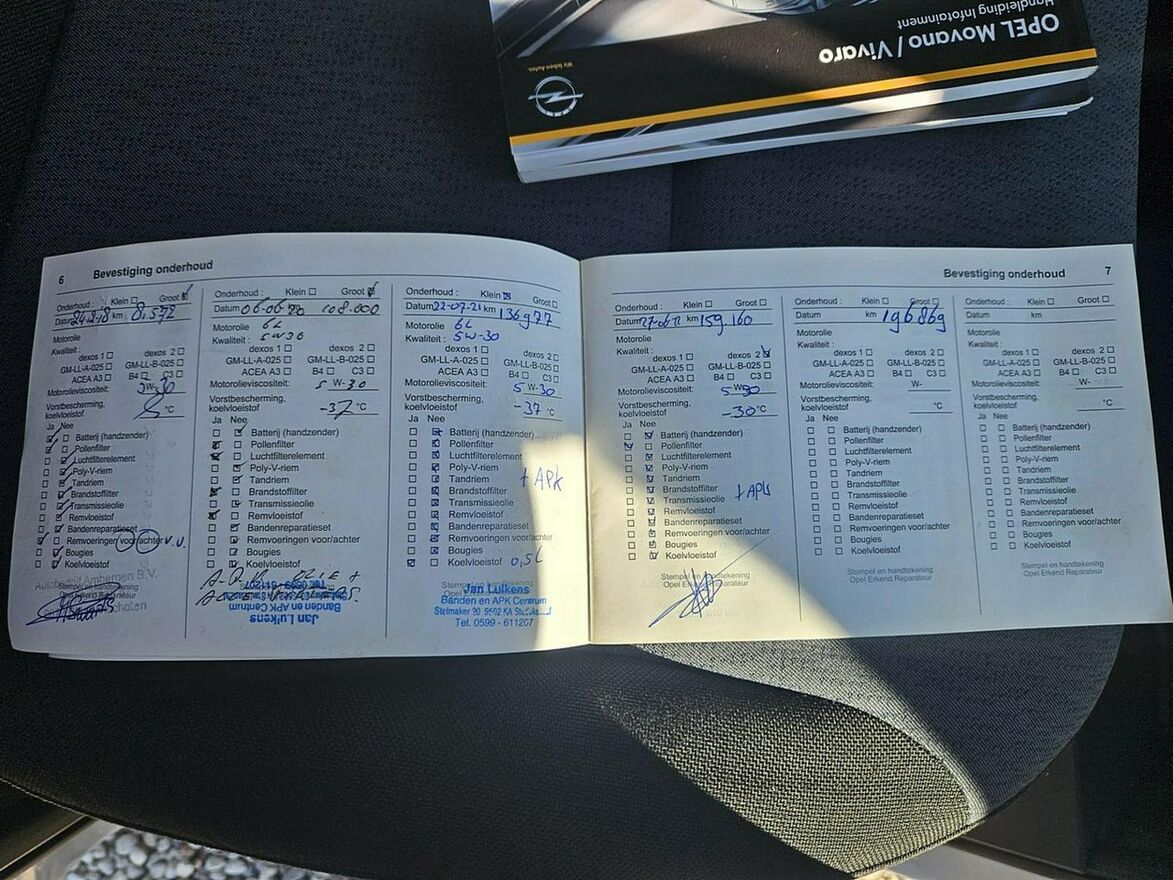 OPEL Movano / Vivaro
Handleiding Infotainment
Wir leben Autos.
6 Bevestiging onderhoud
Onderhoud : Klein Groot
Datum 24-12-18 km
Motorolie
Kwaliteit :
dexos 1 dexos 2
GM-LL-A-025 GM-LL-B-025
ACEA A3 B4 C3
Motorolieviscositeit:
W-30
Vorstbescherming,
koelvloeistof °C
Ja Nee
Batterij (handzender)
Pollenfilter
Luchtfilterelement
Poly-V-riem
Tandriem
Brandstoffilter
Transmissieolie
Remvloeistof
Bandenreparatieset
Remvoeringen voor/achter V.V.
Bougies
Koelvloeistof
Stempel en handtekening
Opel Erkend Reparateur
Onderhoud : Klein Groot
Datum 06-06-20 108.000
Motorolie 6L
Kwaliteit : 5W30
dexos 1 dexos 2
GM-LL-A-025 GM-LL-B-025
ACEA A3 B4 C3
Motorolieviscositeit: 5 W-30
Vorstbescherming,
koelvloeistof -37 °C
Ja Nee
Batterij (handzender)
Pollenfilter
Luchtfilterelement
Poly-V-riem
Tandriem
Brandstoffilter
Transmissieolie
Remvloeistof
Bandenreparatieset
Remvoeringen voor/achter
Bougies
Koelvloeistof
Jan Luikens
Banden en APK Centrum
Tel. 0599 - 611207
Onderhoud : Klein Groot
Datum 22-07-21 km 136977
Motorolie 6L
Kwaliteit : 5W-30
dexos 1 dexos 2
GM-LL-A-025 GM-LL-B-025
ACEA A3 B4 C3
Motorolieviscositeit:
5 W-30
Vorstbescherming,
koelvloeistof -37 °C
Ja Nee
Batterij (handzender)
Pollenfilter
Luchtfilterelement
Poly-V-riem
Tandriem + APK
Brandstoffilter
Transmissieolie
Remvloeistof
Bandenreparatieset
Remvoeringen voor/achter
Bougies
Koelvloeistof 0,5L
Stempel en handtekening
Jan Luikens
Banden en APK Centrum
Stelmaker 20 9502 KA
Tel. 0599 - 611207
Bevestiging onderhoud 7
Onderhoud : Klein Groot
Datum km 159.160
Motorolie
Kwaliteit :
dexos 1 dexos 2
GM-LL-A-025 GM-LL-B-025
ACEA A3 B4 C3
Motorolieviscositeit: 5 W-30
Vorstbescherming,
koelvloeistof -30 °C
Ja Nee
Batterij (handzender)
Pollenfilter
Luchtfilterelement
Poly-V-riem
Tandriem
Brandstoffilter + APK
Transmissieolie
Remvloeistof
Bandenreparatieset
Remvoeringen voor/achter
Bougies
Koelvloeistof
Stempel en handtekening
Opel Erkend Reparateur
Onderhoud : Klein Groot
Datum km 196869
Motorolie
Kwaliteit :
dexos 1 dexos 2
GM-LL-A-025 GM-LL-B-025
ACEA A3 B4 C3
Motorolieviscositeit: W-
Vorstbescherming,
koelvloeistof °C
Ja Nee
Batterij (handzender)
Pollenfilter
Luchtfilterelement
Poly-V-riem
Tandriem
Brandstoffilter
Transmissieolie
Remvloeistof
Bandenreparatieset
Remvoeringen voor/achter
Bougies
Koelvloeistof
Stempel en handtekening
Opel Erkend Reparateur
Onderhoud : Klein Groot
Datum km
Motorolie
Kwaliteit :
dexos 1 dexos 2
GM-LL-A-025 GM-LL-B-025
ACEA A3 B4 C3
Motorolieviscositeit: W-
Vorstbescherming,
koelvloeistof °C
Ja Nee
Batterij (handzender)
Pollenfilter
Luchtfilterelement
Poly-V-riem
Tandriem
Brandstoffilter
Transmissieolie
Remvloeistof
Bandenreparatieset
Remvoeringen voor/achter
Bougies
Koelvloeistof
Stempel en handtekening
Opel Erkend Reparateur